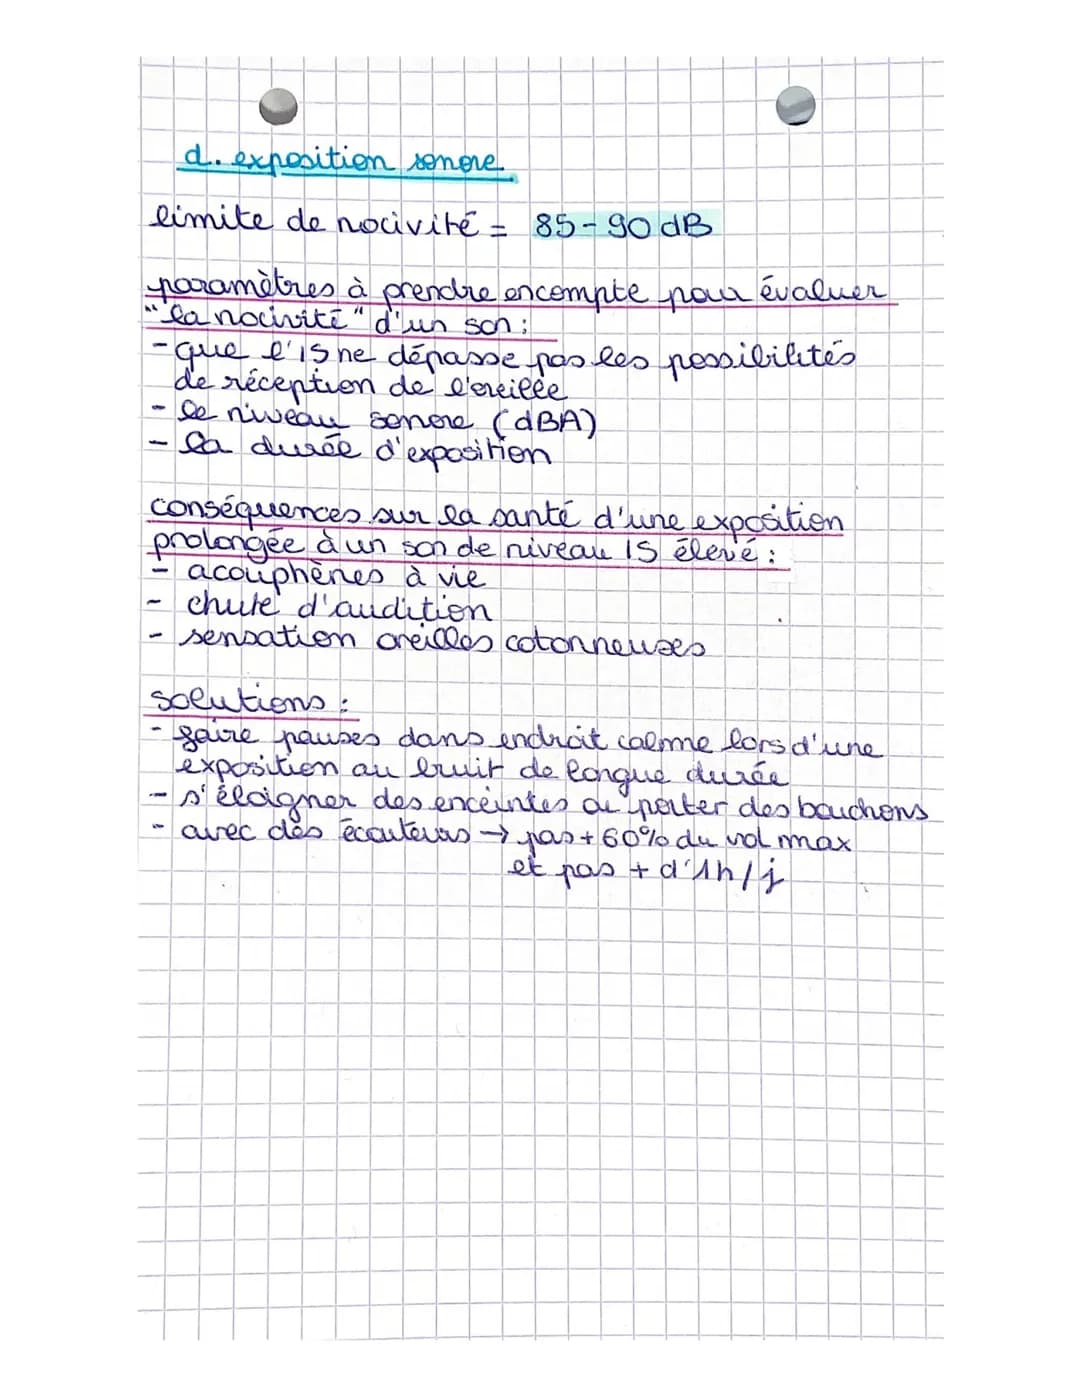 d. exposition sonore
limite de nocivité = 85-90 dB
paramètres à prendre en compte pour évaluer
"la nocivité" d'un son :
- que l'IS ne dépasse pas les possibilités
de réception de l'oreille
- le niveau sonore (dBA)
- la durée d'exposition
conséquences sur la santé d'une exposition
prolongée à un son de niveau IS élevé :
- acouphènes à vie
- chute d'audition
- sensation oreilles cotonneuses
solutions :
- faire pauses dans endroit calme lors d'une
exposition au bruit de longue durée
- s'éloigner des enceintes ou porter des bouchons
- avec des écouteurs → pas + 60% du vol max
et pas + d'1h/j